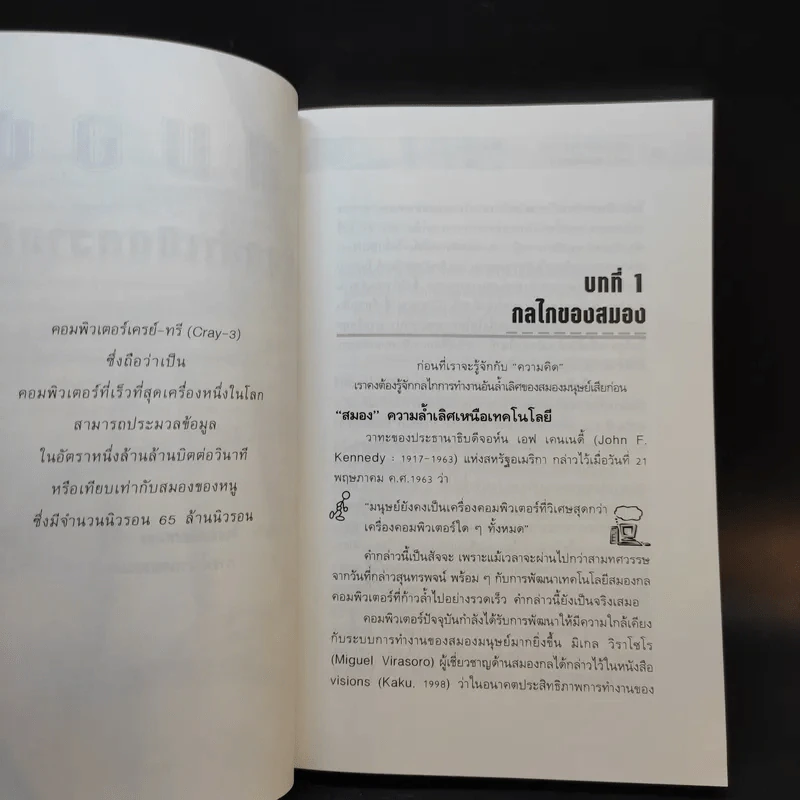 คอมพิวเตอร์เครย์-ทรี (Cray-3)
ซึ่งถือว่าเป็น
คอมพิวเตอร์ที่เร็วที่สุดเครื่องหนึ่งในโลก
สามารถประมวลข้อมูล
ในอัตราหนึ่งล้านล้านบิตต่อวินาที
หรือเทียบเท่ากับสมองของหนู
ซึ่งมีจำนวนนิวรอน 65 ล้านนิวรอน
บทที่ 1
กลไกของสมอง
ก่อนที่เราจะรู้จักกับ "ความคิด"
เราคงต้องรู้จักกลไกการทำงานอันล้ำเลิศของสมองมนุษย์เสียก่อน
"สมอง" ความล้ำเลิศเหนือเทคโนโลยี
วาทะของประธานาธิบดีจอห์น เอฟ เคนเนดี้ (John F.
Kennedy : 1917-1963) แห่งสหรัฐอเมริกา กล่าวไว้เมื่อวันที่ 21
พฤษภาคม ค.ศ.1963 ว่า
"มนุษย์ยังคงเป็นเครื่องคอมพิวเตอร์ที่วิเศษสุดกว่า
เครื่องคอมพิวเตอร์ใด ๆ ทั้งหมด"
คำกล่าวนี้เป็นสัจจะ เพราะแม้เวลาจะผ่านไปกว่าสามทศวรรษ
จากวันที่กล่าวสุนทรพจน์ พร้อม ๆ กับการพัฒนาเทคโนโลยีสมองกล
คอมพิวเตอร์ที่ก้าวล้ำไปอย่างรวดเร็ว คำกล่าวนี้ยังเป็นจริงเสมอ
คอมพิวเตอร์ปัจจุบันกำลังได้รับการพัฒนาให้มีความใกล้เคียง
กับระบบการทำงานของสมองมนุษย์มากยิ่งขึ้น มิเกล วิราโซโร
(Miguel Virasoro) ผู้เชี่ยวชาญด้านสมองกลได้กล่าวไว้ในหนังสือ
visions (Kaku, 1998) ว่าในอนาคตประสิทธิภาพการทำงานของ